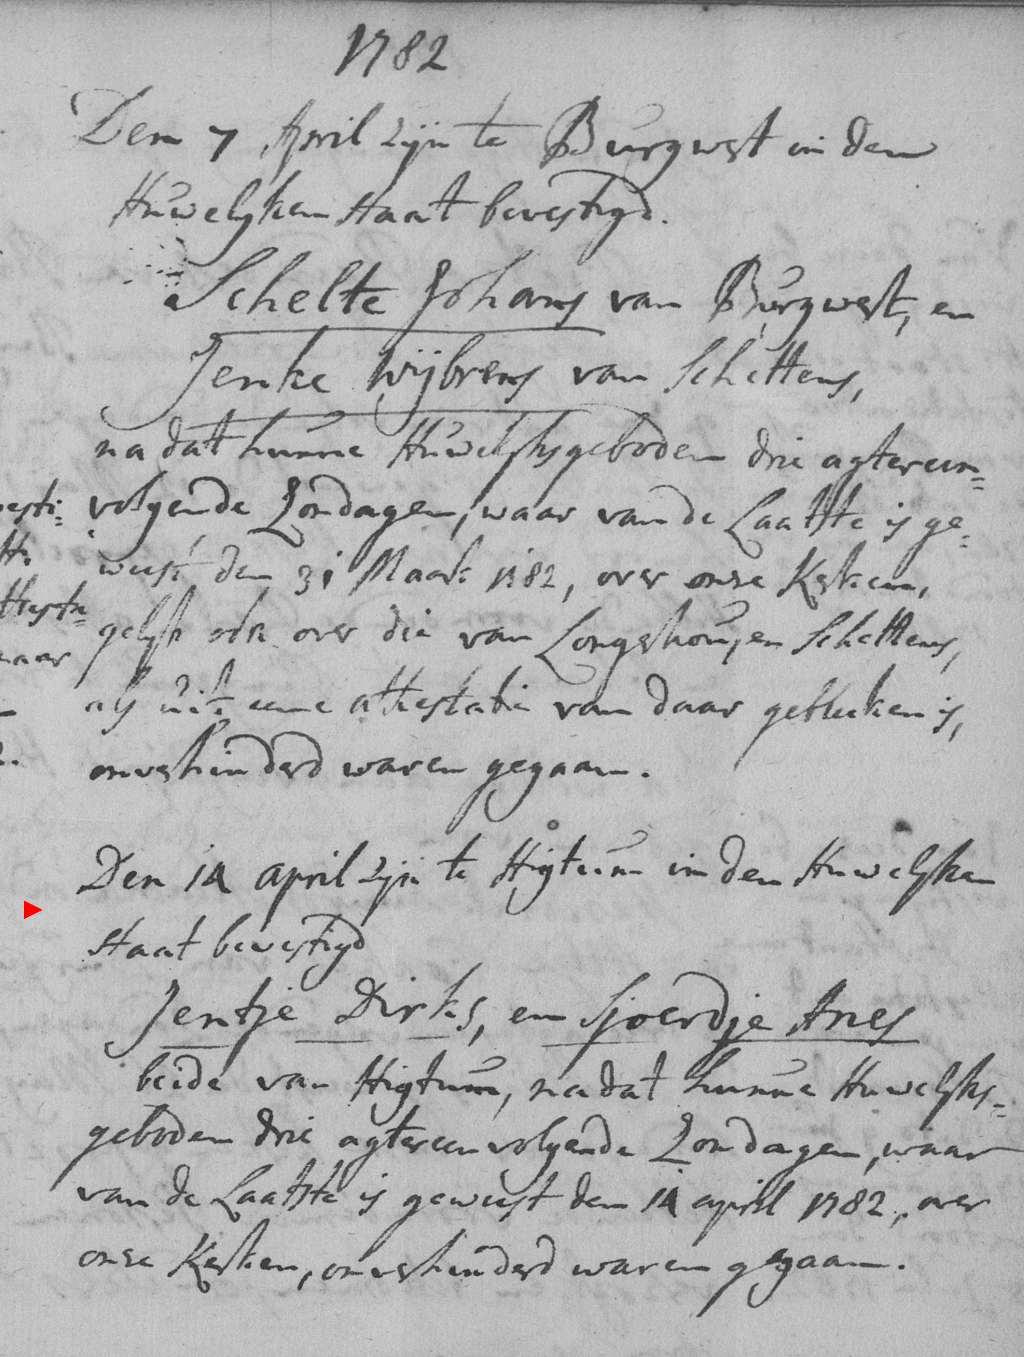 1782
Den 7 April zijn te Burgwert in den
Huwelyken staat bevestigd.
Schelte Johans van Burgwert, en
Jenke Wijbrens van Schettens,
na dat hunne Huwelyksgeboden drie agtereen=
volgende Zondagen, waar van de Laatste is ge=
weest den 31 Maart 1782, over onze Kerken,
gelyk ook over die van Longerhou, en Schettens,
als uit eene attestatie van daar gebleeken is,
onverhinderd waren gegaan.
Den 14 april zijn te Higtum in den Huwelyken
staat bevestigd
Jentje Dirks, en Sjoerdje Anes
beide van Higtum, na dat hunne Huwelyks=
geboden drie agtereenvolgende Zondagen, waar
van de Laatste is geweest den 14 april 1782, over
onze Kerken, onverhinderd waren gegaan.